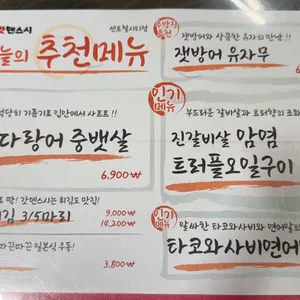 갓덴스시 센트럴시티점
늘의 추천메뉴
적당히 기름기도 입안에서 사르르 !!
다랑어 중뱃살
6,900₩
딱! 갓덴스시는 튀김도 맛집!
튀김 3/5마리
9,000₩
14,200₩
따끈따끈 일본식 우동!
3,800₩
주방장 추천
잿방어와 상큼한 유자의 만남 !!
잿방어 유자무
인기 메뉴
부드러운 갈비살과 트러플향의 조화
진갈비살 암염
트러플오일구이
인기 메뉴
알싸한 타코와사비와 연어알의
타코와사비연어